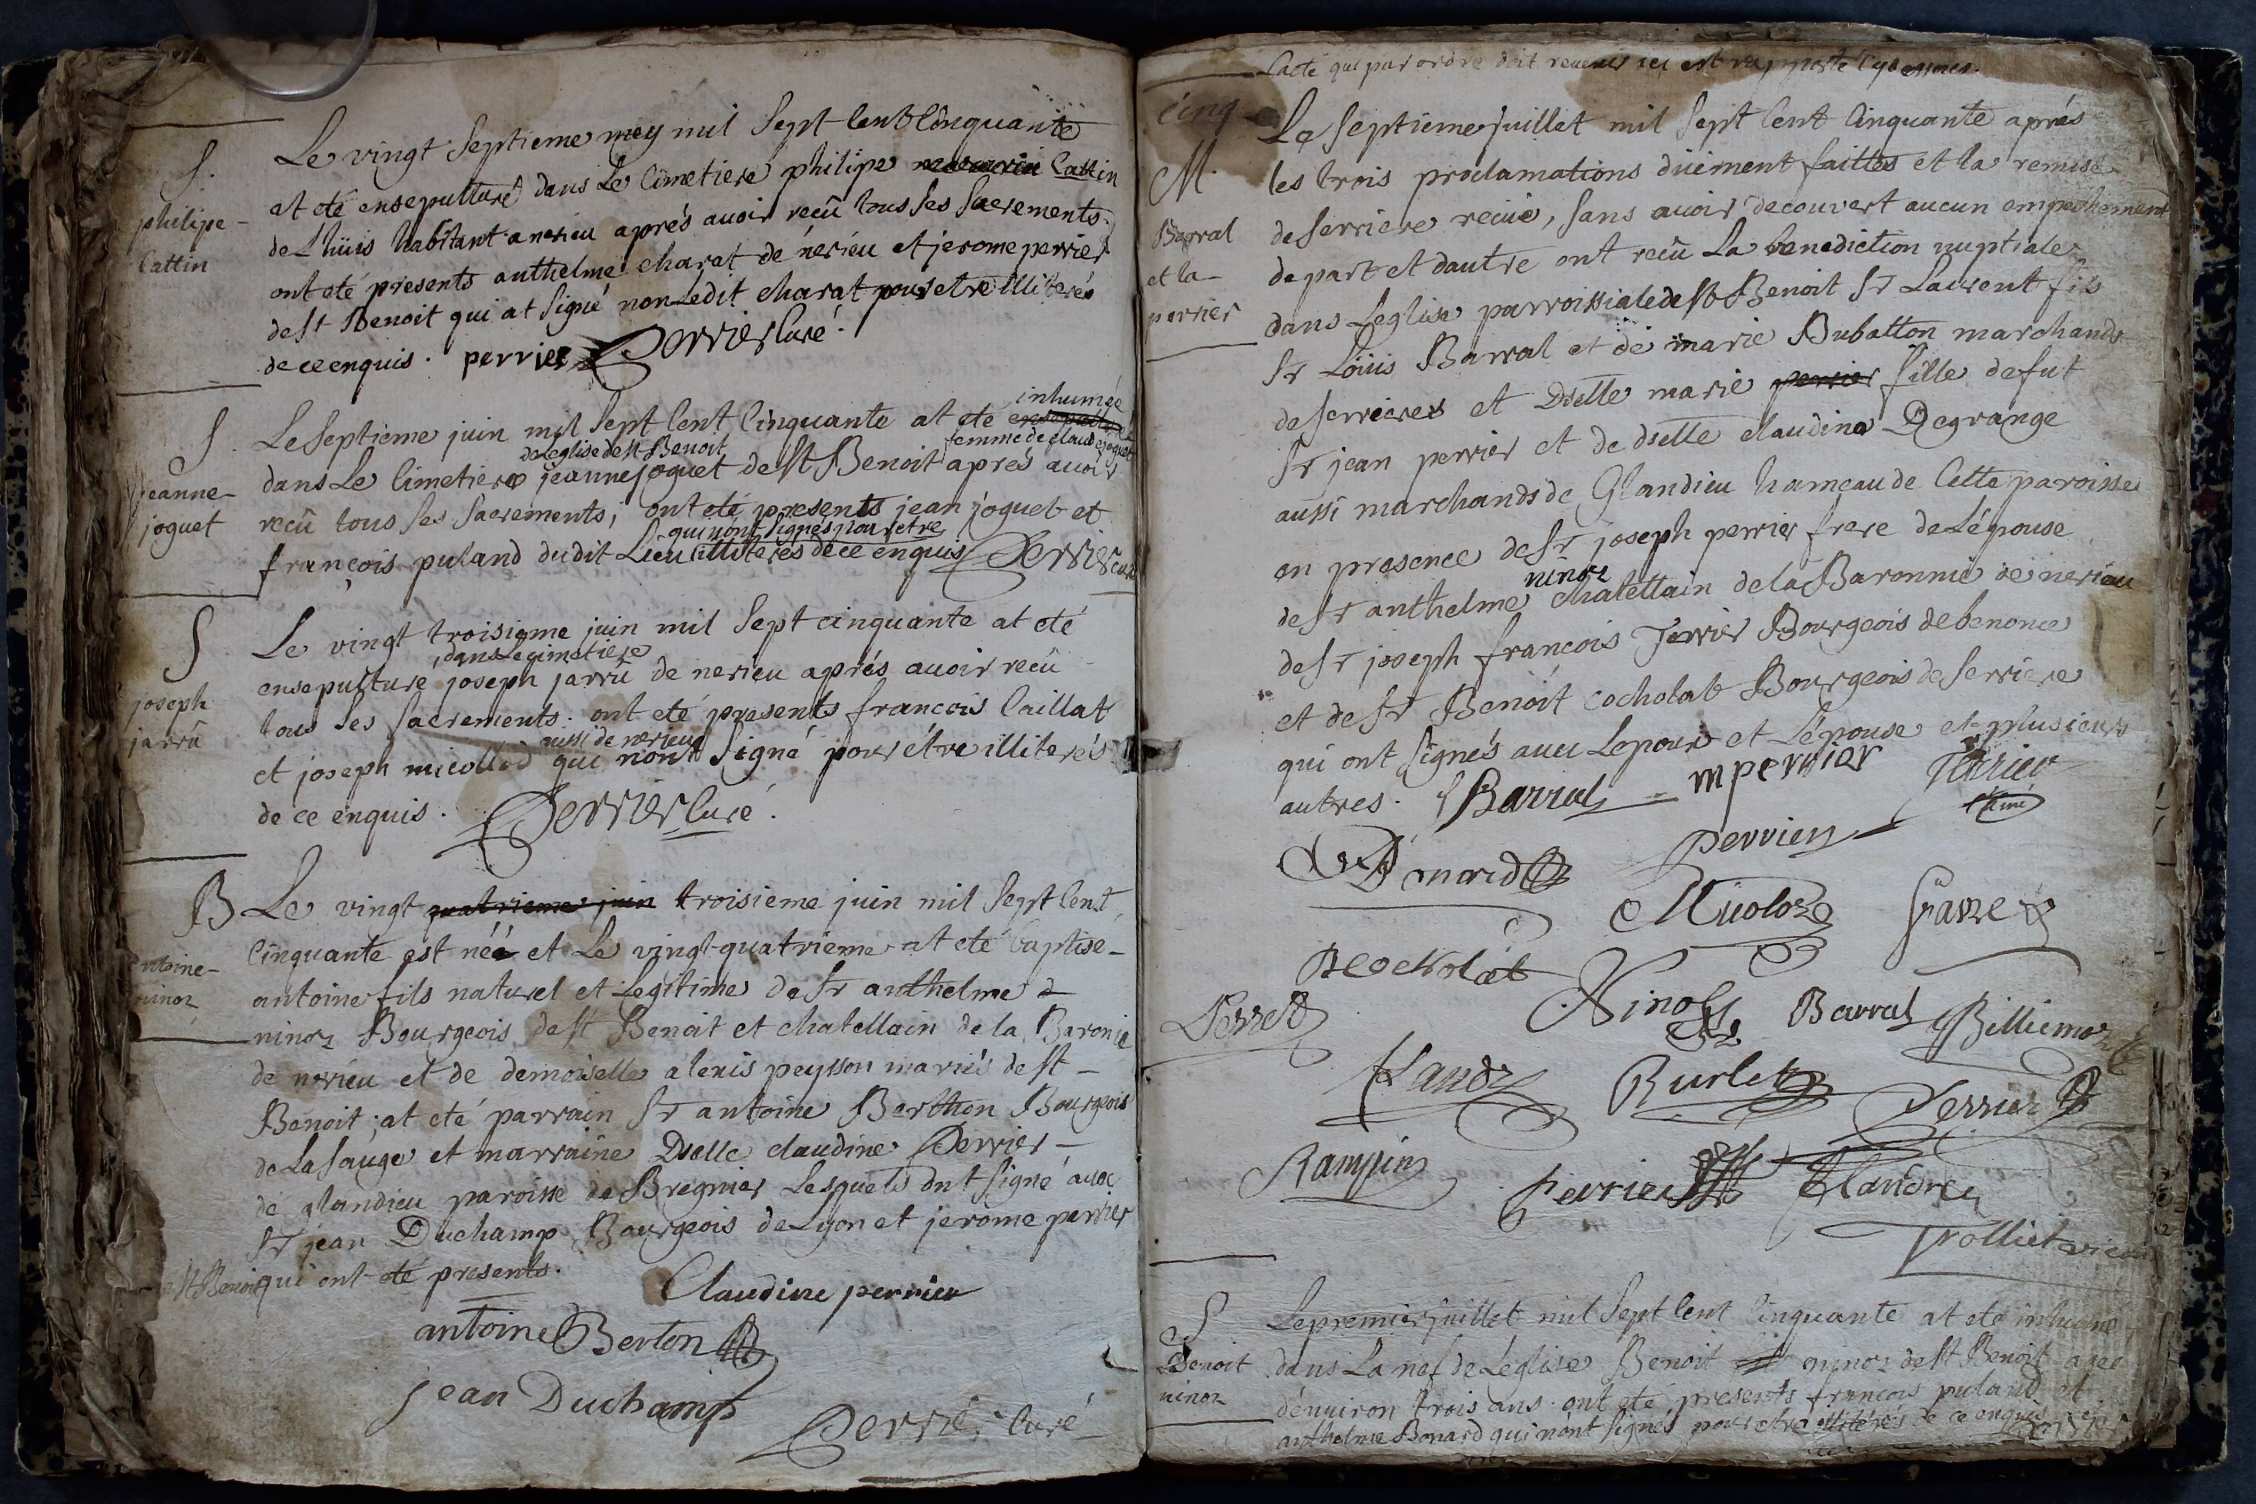 S.
philipe
Cattin
Le vingt septieme mey mil sept cent cinquante
at eté ensepulturé dans Le cimetiere philipe Cattin
de Lhüis habitant a nerieu aprés auoir recû tous ses sacrements.
ont eté presents anthelme charat de nérieu et jerome perrier
de st Benoit qui at signé non Ledit charat pour etre illiterés
de ce enquis. perrier Perrier curé.
S.
jeanne
joguet
inhumée
Le septieme juin mil sept cent cinquante at eté
de Leglise de st Benoit femme de claude joguet
dans Le cimetiere jeanne joguet de st Benoit aprés auoir
recû tous ses sacrements, ont eté presents jean joguet et
qui n'ont signés pour etre
françois puland dudit Lieu illiterés de ce enquis Perrier curé
S
joseph
jarrû
Le vingt troisieme juin mil sept cinquante at eté
dans Le cimetiere
ensepulture joseph jarrû de nerieu aprés auoir recû
tous ses sacrements. ont eté presents francois Caillat
aussi de nerieu
et joseph micollod qui nont signé pour étre illiterés
de ce enquis. Perrier curé.
B
antoine
ninoz
Le vingt quatrieme juin troisieme juin mil sept cent
cinquante est néé et Le vingt quatrieme at eté baptise
antoine fils naturel et Legitime de sr anthelme
ninoz Bourgeois de st Benoit et chatellain de la Baronie
de nerieu et de demoiselle alexis peysson mariés de st
Benoit; at eté parrain sr antoine Berthon Bourgeois
de La sauge et marraine Dselle claudine Perrier
de glandieu paroisse de Bregnier Lesquels ont signé auec
sr jean Duchamp Bourgeois de Lyon et jerome perrier
de st Benoit qui ont eté presents.
Claudine perrier
antoine Berton
jean Duchamp
Perrier curé
L'acte qui par ordre doit reuenir icy est rapporté cy dessous.
cinq
M.
Barral
et la
perrier
Le septieme juillet mil sept cent cinquante aprés
les trois proclamations düement faittes et la remise
de serriere recüe, sans auoir decouvert aucun empechement
de part et dautre ont recû La benediction nuptiale
dans Leglise parroissiale de st Benoit sr Laurent fils
sr Loüis Barral et de marie Dubatton marchands
de serrieres et Dselle marie perrier fille de fut
sr jean perrier et de dselle claudine Degrange
aussi marchands de Glandieu hameau de cette paroisse
en presence de sr joseph perrier frere de Lépouse
ninoz
de sr anthelme chatellain de la Baronnie de nerieu
de sr joseph francois Ferrier Bourgeois de benonce
et de sr Benoit cocholat Bourgeois de serriere
qui ont signés auec Lepoux et Lépouse et plusieurs
autres. Barral m perrier
Perrier
Ninoz Barral Billiemaz
Burlet
Perrier
Rampin
Perrier
Trolliet vicaire
S
Benoit
ninoz
Le premier juillet mil sept cent cinquante at eté inhumé
dans La nef de Léglise Benoit ninoz de st Benoit agé
d'enuiron trois ans. ont eté presents françois puland et
anthelme Bonard qui n'ont signés pour etre illiterés de ce enquis